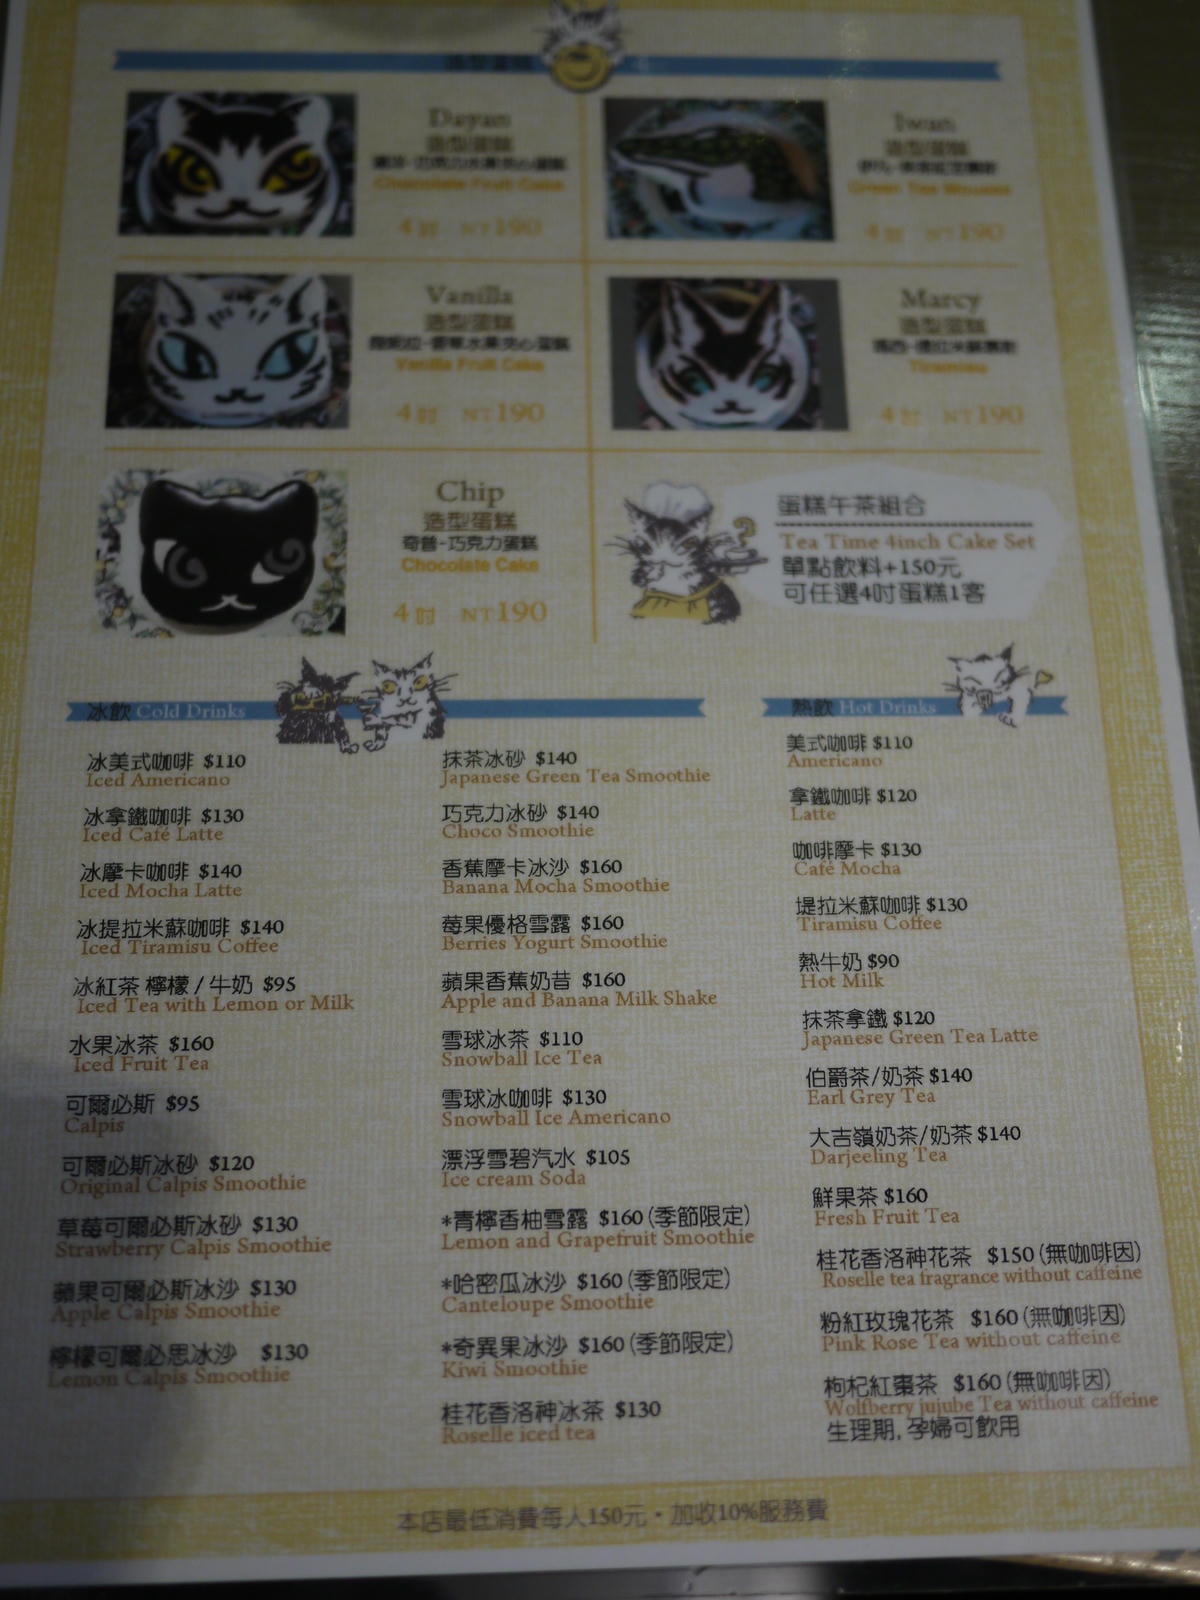 造型蛋糕
Dayan
造型蛋糕
達洋-巧克力水果夾心蛋糕
Chocolate Fruit Cake
4吋 NT190
Iwan
造型蛋糕
Green Tea Mousse
4吋 NT190
Vanilla
造型蛋糕
Vanilla Fruit Cake
4吋 NT190
Marcy
造型蛋糕
瑪西-提拉米蘇慕斯
Tiramisu
4吋 NT190
Chip
造型蛋糕
奇普-巧克力蛋糕
Chocolate Cake
4吋 NT190
蛋糕午茶組合
Tea Time 4inch Cake Set
單點飲料+150元
可任選4吋蛋糕1客
冰飲 Cold Drinks
冰美式咖啡 $110
Iced Americano
冰拿鐵咖啡 $130
Iced Café Latte
冰摩卡咖啡 $140
Iced Mocha Latte
冰提拉米蘇咖啡 $140
Iced Tiramisu Coffee
冰紅茶 檸檬 / 牛奶 $95
Iced Tea with Lemon or Milk
水果冰茶 $160
Iced Fruit Tea
可爾必斯 $95
Calpis
可爾必斯冰砂 $120
Original Calpis Smoothie
草莓可爾必斯冰砂 $130
Strawberry Calpis Smoothie
蘋果可爾必斯冰沙 $130
Apple Calpis Smoothie
檸檬可爾必思冰沙 $130
Lemon Calpis Smoothie
抹茶冰砂 $140
Japanese Green Tea Smoothie
巧克力冰砂 $140
Choco Smoothie
香蕉摩卡冰沙 $160
Banana Mocha Smoothie
莓果優格雪露 $160
Berries Yogurt Smoothie
蘋果香蕉奶昔 $160
Apple and Banana Milk Shake
雪球冰茶 $110
Snowball Ice Tea
雪球冰咖啡 $130
Snowball Ice Americano
漂浮雪碧汽水 $105
Ice cream Soda
*青檸香柚雪露 $160 (季節限定)
Lemon and Grapefruit Smoothie
*哈密瓜冰沙 $160 (季節限定)
Canteloupe Smoothie
*奇異果冰沙 $160 (季節限定)
Kiwi Smoothie
桂花香洛神冰茶 $130
Roselle iced tea
熱飲 Hot Drinks
美式咖啡 $110
Americano
拿鐵咖啡 $120
Latte
咖啡摩卡 $130
Café Mocha
堤拉米蘇咖啡 $130
Tiramisu Coffee
熱牛奶 $90
Hot Milk
抹茶拿鐵 $120
Japanese Green Tea Latte
伯爵茶/奶茶 $140
Earl Grey Tea
大吉嶺奶茶/奶茶 $140
Darjeeling Tea
鮮果茶 $160
Fresh Fruit Tea
桂花香洛神花茶 $150 (無咖啡因)
Roselle tea fragrance without caffeine
粉紅玫瑰花茶 $160 (無咖啡因)
Pink Rose Tea without caffeine
枸杞紅棗茶 $160 (無咖啡因)
Wolfberry jujube Tea without caffeine
生理期, 孕婦可飲用
本店最低消費每人150元・加收10%服務費